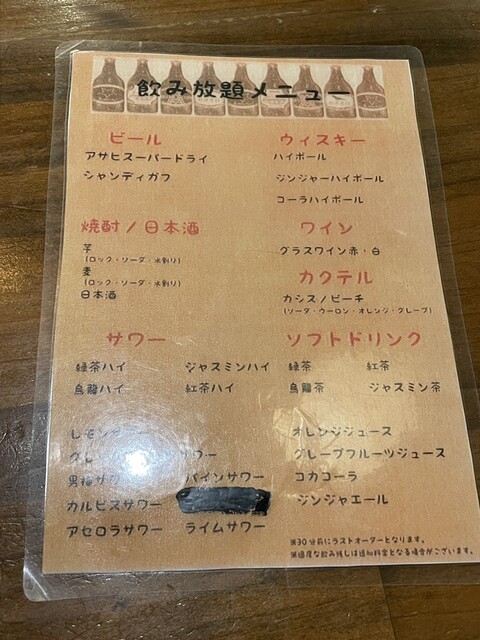 飲み放題メニュー
ビール
アサヒスーパードライ
シャンディガフ
ウィスキー
ハイボール
ジンジャーハイボール
コーラハイボール
焼酎/日本酒
芋
(ロック・ソーダ・水割り)
麦
(ロック・ソーダ・水割り)
日本酒
ワイン
グラスワイン赤・白
カクテル
カシス/ピーチ
(ソーダ・ウーロン・オレンジ・グレープ)
サワー
緑茶ハイ ジャスミンハイ
烏龍ハイ 紅茶ハイ
レモン
グレ サワー
男梅サワ パインサワー
カルピスサワー
アセロラサワー ライムサワー
ソフトドリンク
緑茶 紅茶
烏龍茶 ジャスミン茶
オレンジジュース
グレープフルーツジュース
コカコーラ
ジンジャエール
※30分前にラストオーダーとなります。
※過度な飲み残しは追加料金となる場合がございます。